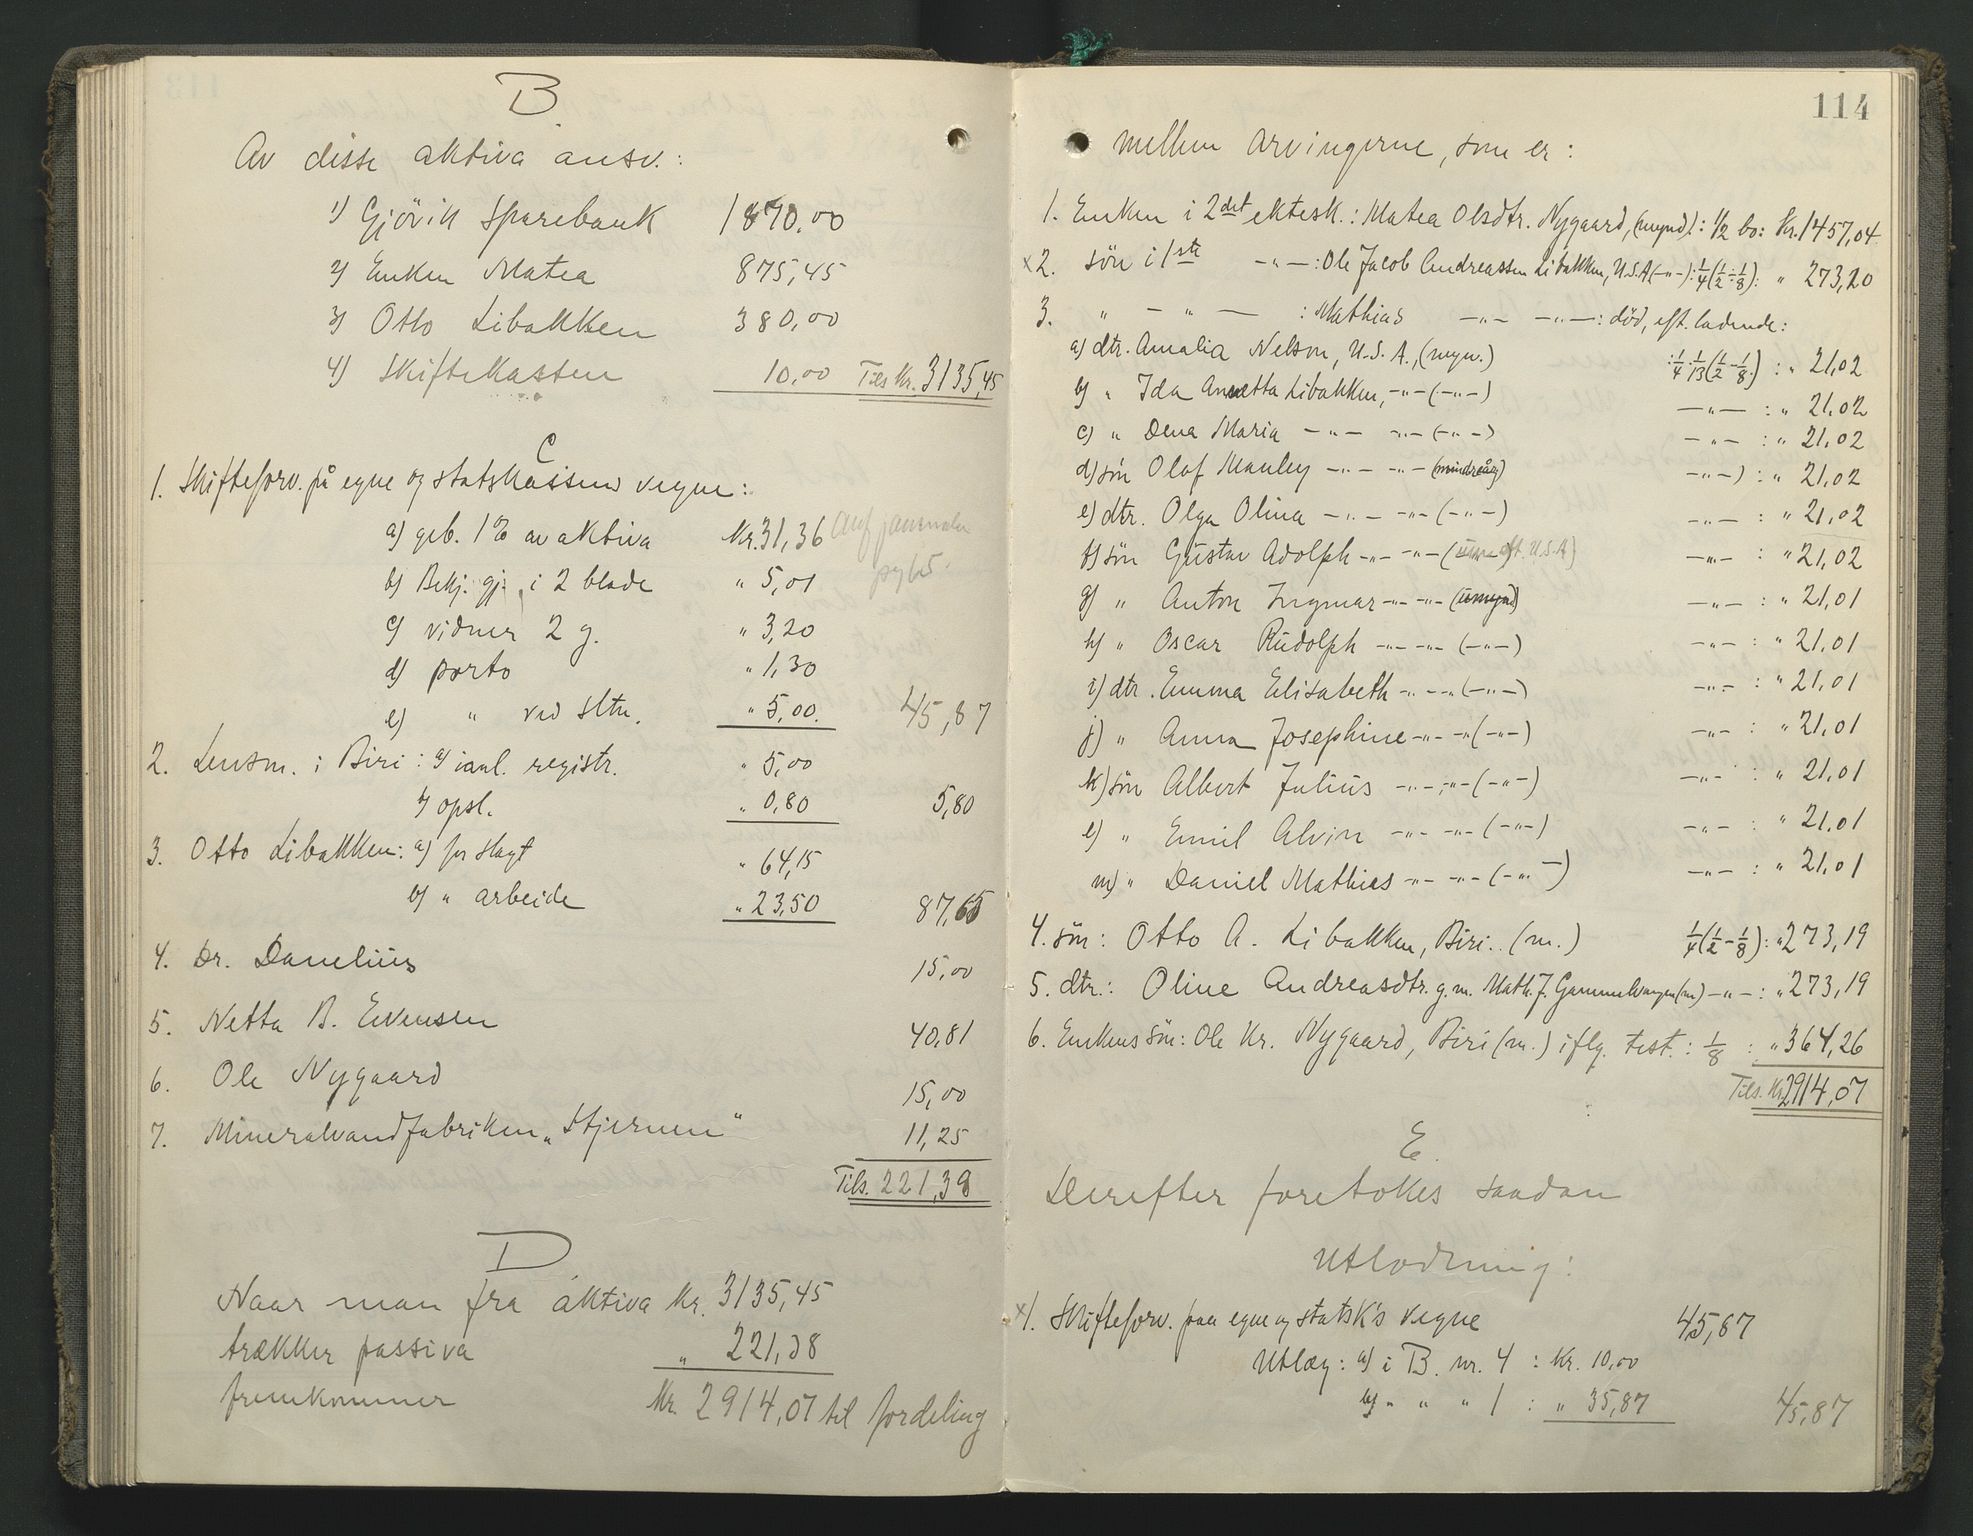 B.
Av disse aktiva ansv.:
1) Gjövik Sparebank 1870,00
2) Enken Matea 875,45
3) Otto Libakken 380,00
4) Skiftekassen 10,00 Tils Kr. 3135,45
C
1. Skifteforv. på egne og statskassens vegne:
a) geb. 1% av aktiva Kr. 31,36
b) Bekj. gj. i 2 blade " 5,01
c) vidner 2 g. " 3,20
d) porto " 1,30
e) " ved sltn. " 5,00. 45,87
2. Lensm. i Biri: a) registr. " 5,00
b) opsl. " 0,80 5,80
3. Otto Libakken: a) for slagt " 64,15
b) " arbeide " 23,50 87,65
4. Dr. Danelius 15,00
5. Netta B. Evensen 40,81
6. Ole Nygaard 15,00
7. Mineralvandfabriken „Stjernen" 11,25
Tils. 221,38
D
Naar man fra aktiva kr. 3135,45
trækker passiva " 221,38
fremkommer Kr. 2914,07 til fordeling
114
mellem arvingerne, som er:
1. Enken i 2det ektesk.: Matea Olsdtr. Nygaard, (mynd): 1/2 bo: Kr. 1457,04
x2. sön i 1ste -"-: Ole Jacob Andreassen Libakken, U.S.A. (-"-): 1/4 (1/2 ÷ 1/8): " 273,20
3. " - " - : Mathias -"- -"-: död, eft. ladende:
a) dtr. Amalia Nelson, U.S.A., (myn.) : 1/4 · 1/13 (1/2 - 1/8) : " 21,02
b) " Ida Annetta Libakken, -"- (-"-) -"- : " 21,02
c) " Dena Maria -"- -"- (-"-) -"- : " 21,02
d) sön Olaf Manley -"- -"- (mindreårg) -"-) : " 21,02
e) dtr. Olga Olina -"- -"- (-"-) -"- : " 21,02
f) sön Gustav Adolph -"- -"- ( U.S.A) -"- : " 21,02
g) " Anton Ingmar -"- -"- (umynd) -"- : " 21,01
h) " Oscar Rudolph -"- -"- (-"-) -"- : " 21,01
i) dtr. Emma Elisabeth -"- -"- (-"-) -"- : " 21,01
j) " Anna Josephine -"- -"- (-"-) -"- : " 21,01
k) sön Albert Julius -"- -"- (-"-) -"- : " 21,01
l) " Emil Alvin -"- -"- (-"-) -"- : " 21,01
m) " Daniel Mathies -"- -"- (-"-) -"- : " 21,01
4. sön: Otto A. Libakken, Biri.. (m.) 1/4 (1/2 - 1/8): " 273,19
5. dtr.: Oline Andreasdtr. g.m. Math. J. Gammelvangen (m) -"-: " 273,19
6. Enkens sön: Ole Kr. Nygaard, Biri (m.) iflg. test.: 1/8 : " 364,26
Tils. Kr. 2914,07
E.
Derefter foretokes saadan
Utlodning:
x1. Skifteforv. paa egne og statsk's vegne 45,87
Utlæg: a) i B. nr. 4 : Kr. 10,00
b) " " " 1 : " 35,87 45,87